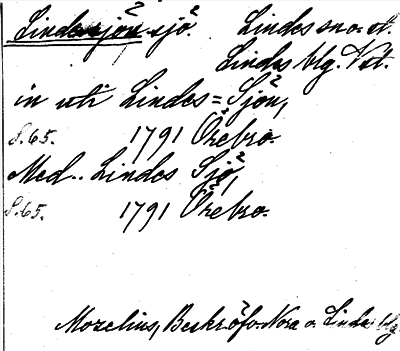 Lindessjön sjö. Lindes sn o. st.
Lindes blg. Vstm.
in uti Lindes=Sjön,
S.65. 1791 Örebro.
Med.. Lindes Sjö,
S.65. 1791 Örebro.
Morelius, Beskr. öfv. Nora o. Linde blg